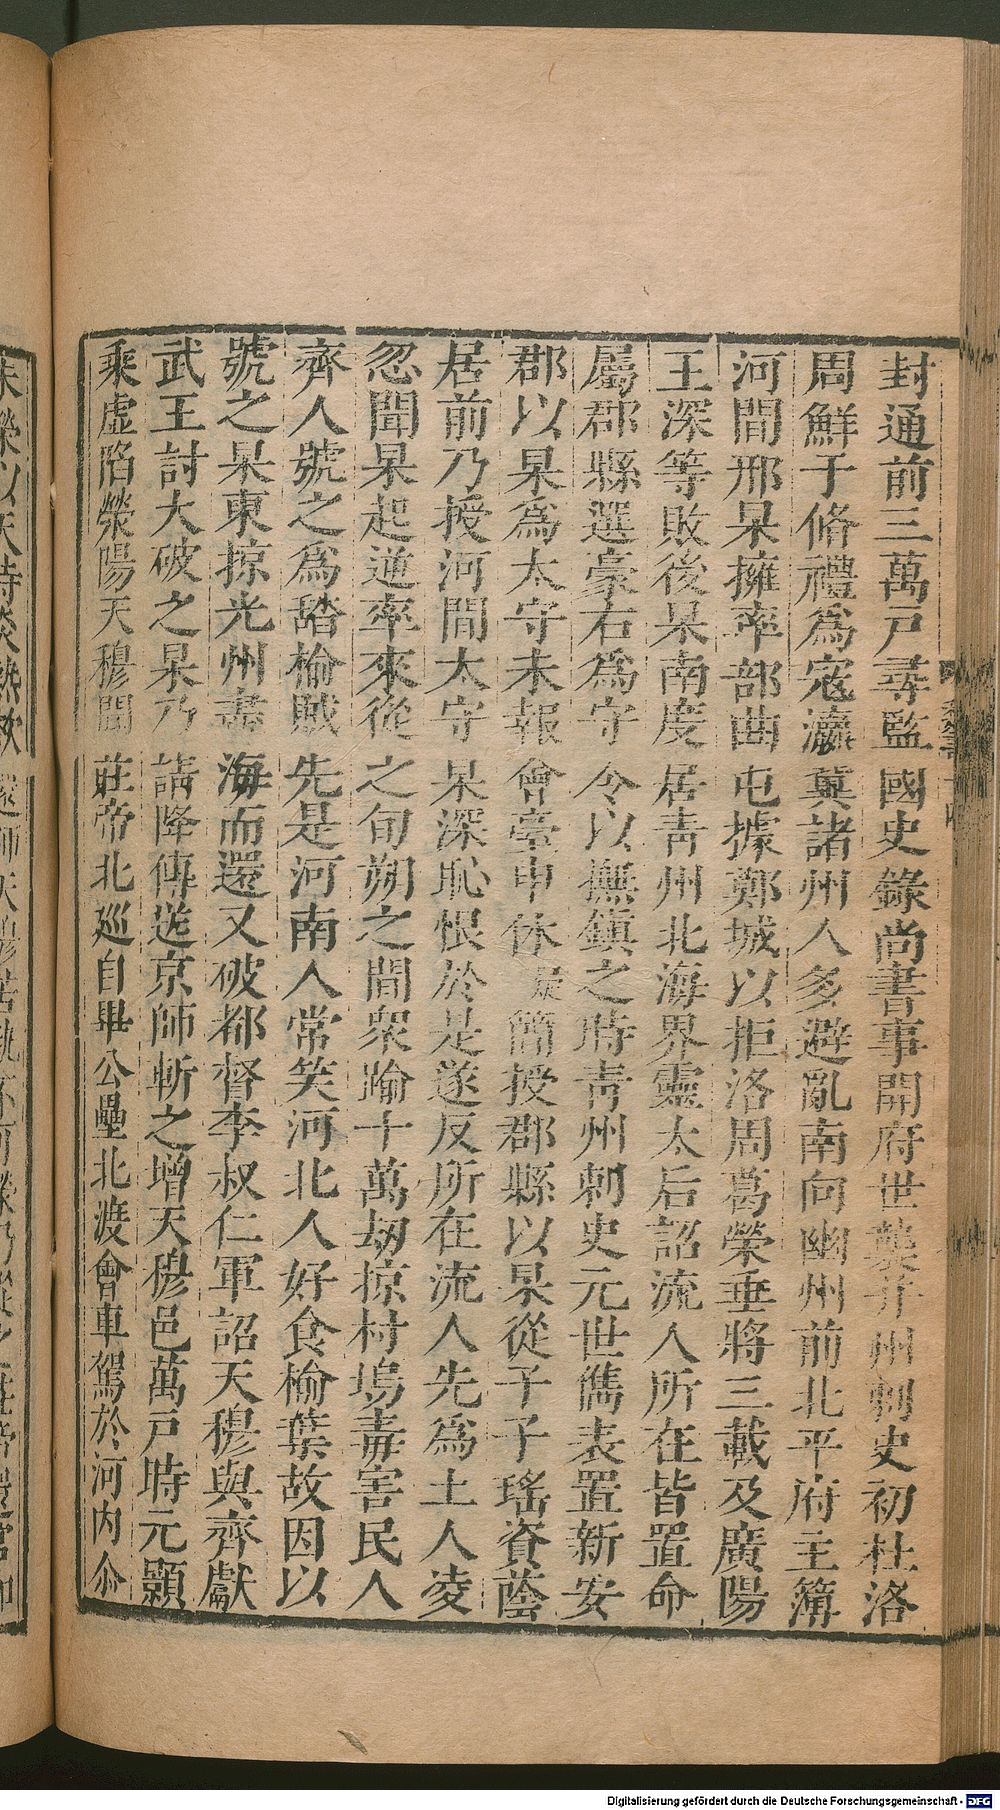 封通前三萬戸尋監國史錄尚書事開府世襲并州刺史初杜洛
周鮮于脩禮為寇瀛冀諸州人多避亂南向幽州前北平府主簿
河間邢杲擁率部曲屯據鄭城以拒洛周葛榮垂將三載及廣陽
王深等敗後杲南度居青州北海界靈太后詔流人所在皆置命
屬郡縣選豪右為守令以撫鎮之時青州刺史元世儁表置新安
郡以杲為太守未報會臺申休簡授郡縣以杲從子子瑤資蔭
居前乃授河間太守杲深恥恨於是遂反所在流人先為土人凌
忽聞杲起逆率來從之旬朔之間衆踰十萬劫掠村塢毒害民人
齊人號之為䤾榆賊先是河南人常笑河北人好食榆葉故因以
號之杲東掠光州盡海而還又破都督李叔仁軍詔天穆與齊獻
武王討大破之杲乃請降傳送京師斬之增天穆邑萬戸時元顥
乘虛陷滎陽天穆聞莊帝北巡自畢公壘北渡會車駕於河内尒
Digitalisierung gefördert durch die Deutsche Forschungsgemeinschaft - DFG